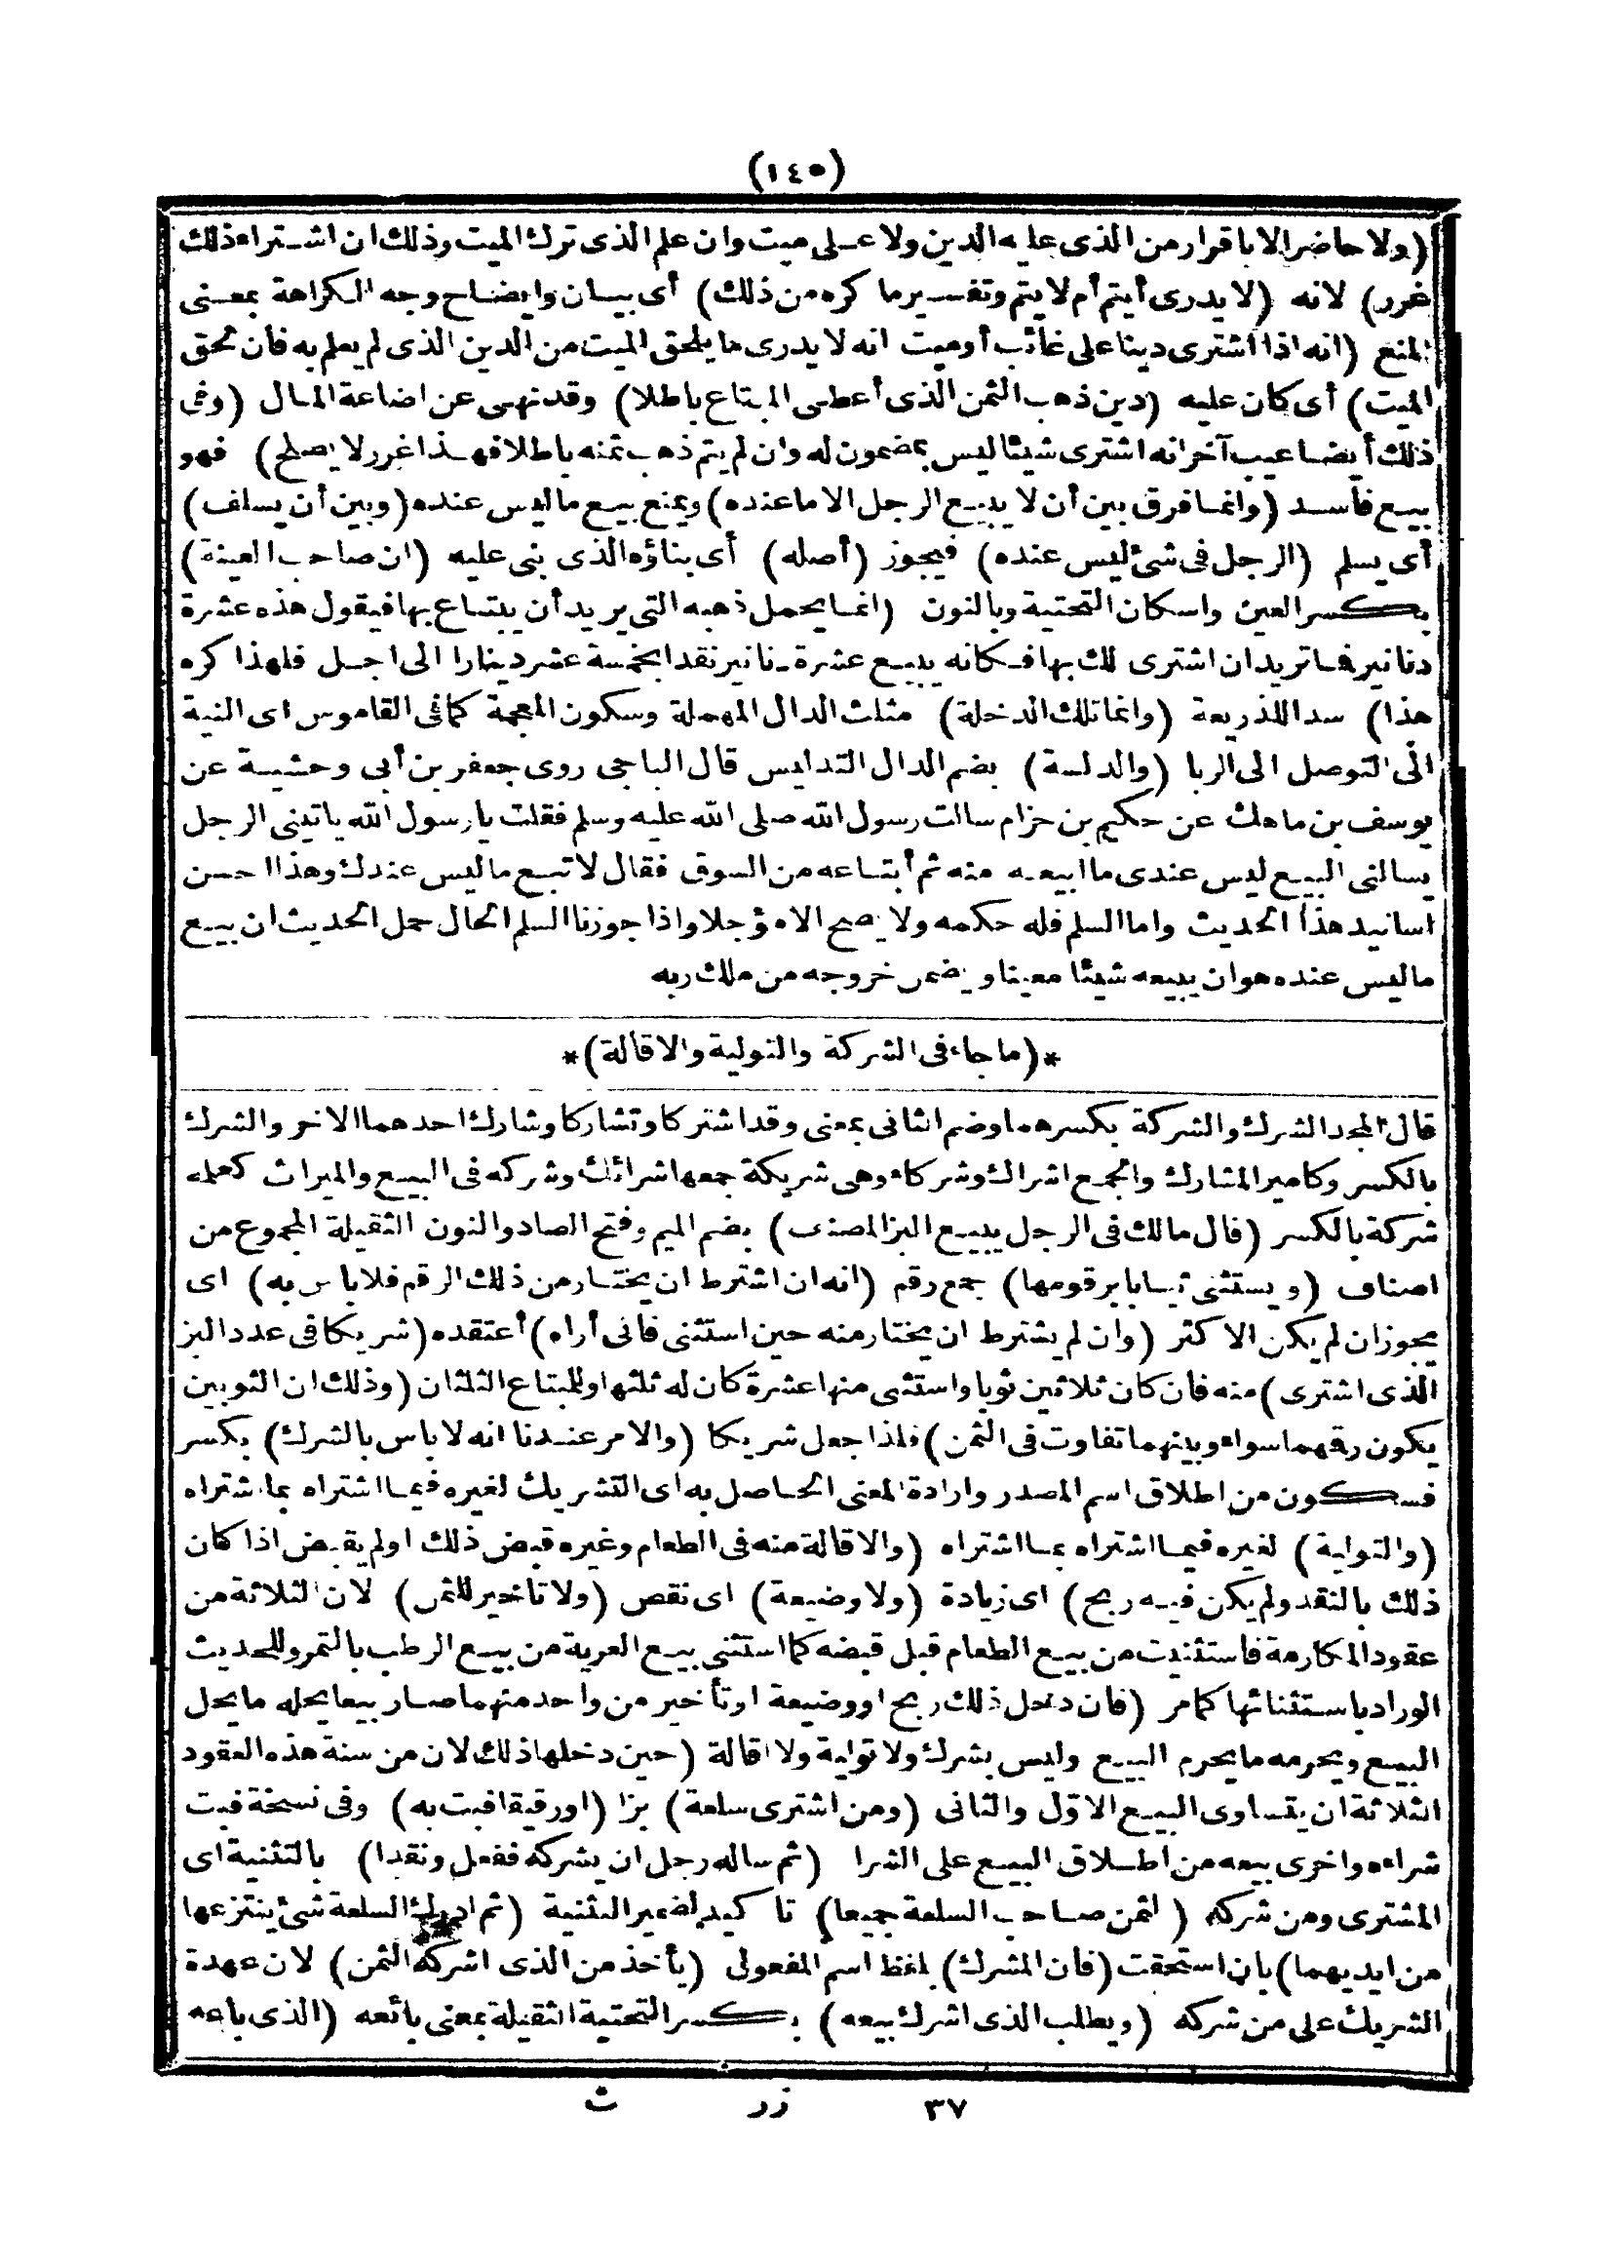 (١٤٥)
(ولا حاضر إلا باقرار من الذى عليه الدين ولا على ميت وان علم الذى ترك الميت وذلك ان اشتراء ذلك
غرر) لانه (لا يدرى أيتم أم لا يتم وتفسير ما كره من ذلك) أى بيان وايضاح وجه الكراهة بمعنى
المنع (انه اذا اشترى دينا على غائب أوميت انه لا يدرى ما يلحق الميت من الدين الذى لم يعلم به فان لحق
الميت) أى كان عليه (دين ذهب الثمن الذى أعطى المبتاع باطلا) وقد نهى عن اضاعة المال (وفى
ذلك أيضا عيب آخر انه اشترى شيئا ليس بمضمون له وان لم يتم ذهب ثمنه باطلا فهذا غرر لا يصلح) فهو
بيع فاسد (وانما فرق بين أن لا يبيع الرجل الا ما عنده) ويمنع بيع ما ليس عنده (وبين أن يسلف)
أى يسلم (الرجل فى شئ ليس عنده) فيجوز (أصله) أى بناؤه الذى بنى عليه (ان صاحب العينة)
بكسر العين واسكان التحتية وبالنون (انما يحمل ذهبه التى يريد أن يبتاع بها فيقول هذه عشرة
دنانير فما تريد ان اشترى لك بها فكانه يبيع عشرة دنانير نقدا بخمسة عشر دينارا الى اجل فلهذا كره
هذا) سدا للذريعة (وانما تلك الدخلة) مثلث الدال المهملة وسكون المعجمة كما فى القاموس اى النية
الى التوصل الى الربا (والدلسة) بضم الدال التدليس قال الباجى روى جعفر بن أبى وحشية عن
يوسف بن ماهك عن حكيم بن حزام سالت رسول الله صلى الله عليه وسلم فقلت يا رسول الله ياتينى الرجل
يسالنى البيع ليس عندى ما ابيعه منه ثم أبتاعه من السوق فقال لا تبع ما ليس عندك وهذا احسن
اسانيد هذا الحديث واما السلم فله حكمه ولا يصح الا مؤجلا واذا جوزنا السلم الحال حمل الحديث ان بيع
ما ليس عنده هو ان يبيعه شيئا معينا ويضمن خروجه من ملك ربه
*(ما جاء فى الشركة والتولية والاقالة)*
قال المجد الشرك والشركة بكسرهما وضم الثانى بمعنى وقد اشتركا وتشاركا وشارك احدهما الاخر والشرك
بالكسر وكامير المشارك والجمع اشراك وشركاء وهى شريكة جمعها شرائك وشركه فى البيع والميراث كعلمه
شركة بالكسر (قال مالك فى الرجل يبيع البز المصنف) بضم الميم وفتح الصاد والنون الثقيلة المجموع من
اصناف (ويستثنى ثيابا برقومها) جمع رقم (انه ان اشترط ان يختار من ذلك الرقم فلا باس به) اى
يجوز ان لم يكن الاكثر (وان لم يشترط ان يختار منه حين استثنى فانى أراه) أعتقده (شريكا فى عدد البز
الذى اشترى) منه فان كان ثلاثين ثوبا واستثنى منها عشرة كان له ثلثها وللمبتاع الثلثان (وذلك ان الثوبين
يكون رقمهما سواء وبينهما تفاوت فى الثمن) فلذا جعل شريكا (والامر عندنا انه لا باس بالشرك) بكسر
فسكون من اطلاق اسم المصدر وارادة المعنى الحاصل به اى التشريك لغيره فيما اشتراه بما اشتراه
(والتولية) لغيره فيما اشتراه بما اشتراه (والاقالة منه فى الطعام وغيره قبض ذلك اولم يقبض اذا كان
ذلك بالنقد ولم يكن فيه ربح) اى زيادة (ولا وضيعة) اى نقص (ولا تاخير للثمن) لان الثلاثة من
عقود المكارمة فاستثنيت من بيع الطعام قبل قبضه كما استثنى بيع العرية من بيع الرطب بالتمر وللحديث
الوراد باستثنائها كما مر (فان دخل ذلك ربح اووضيعة اوتأخير من واحد منهما صار بيعا يحله ما يحل
البيع ويحرمه ما يحرم البيع وليس بشرك ولا تولية ولا اقالة (حين دخلها ذلك لان من سنة هذه العقود
الثلاثة ان يتساوى البيع الاول والثانى (ومن اشترى سلعة) بزا (اورقيقا فبت به) وفى نسخة فبت
شراءه واخرى بيعه من اطلاق البيع على الشرا (ثم ساله رجل ان يشركه ففعل ونقدا) بالتثنية اى
المشترى ومن شركه (الثمن صاحب السلعة جميعا) تاكيد لضمير التثنية (ثم ادرك السلعة شئ ينتزعها
من ايديهما) بان استحقت (فان المشرك) بلفظ اسم المفعولى (يأخذ من الذى اشركه الثمن) لان عهدة
الشريك على من شركه (ويطلب الذى اشرك بيعه) بكسر التحتية الثقيلة بمعنى بائعه (الذى باعه
٣٧ زر ث